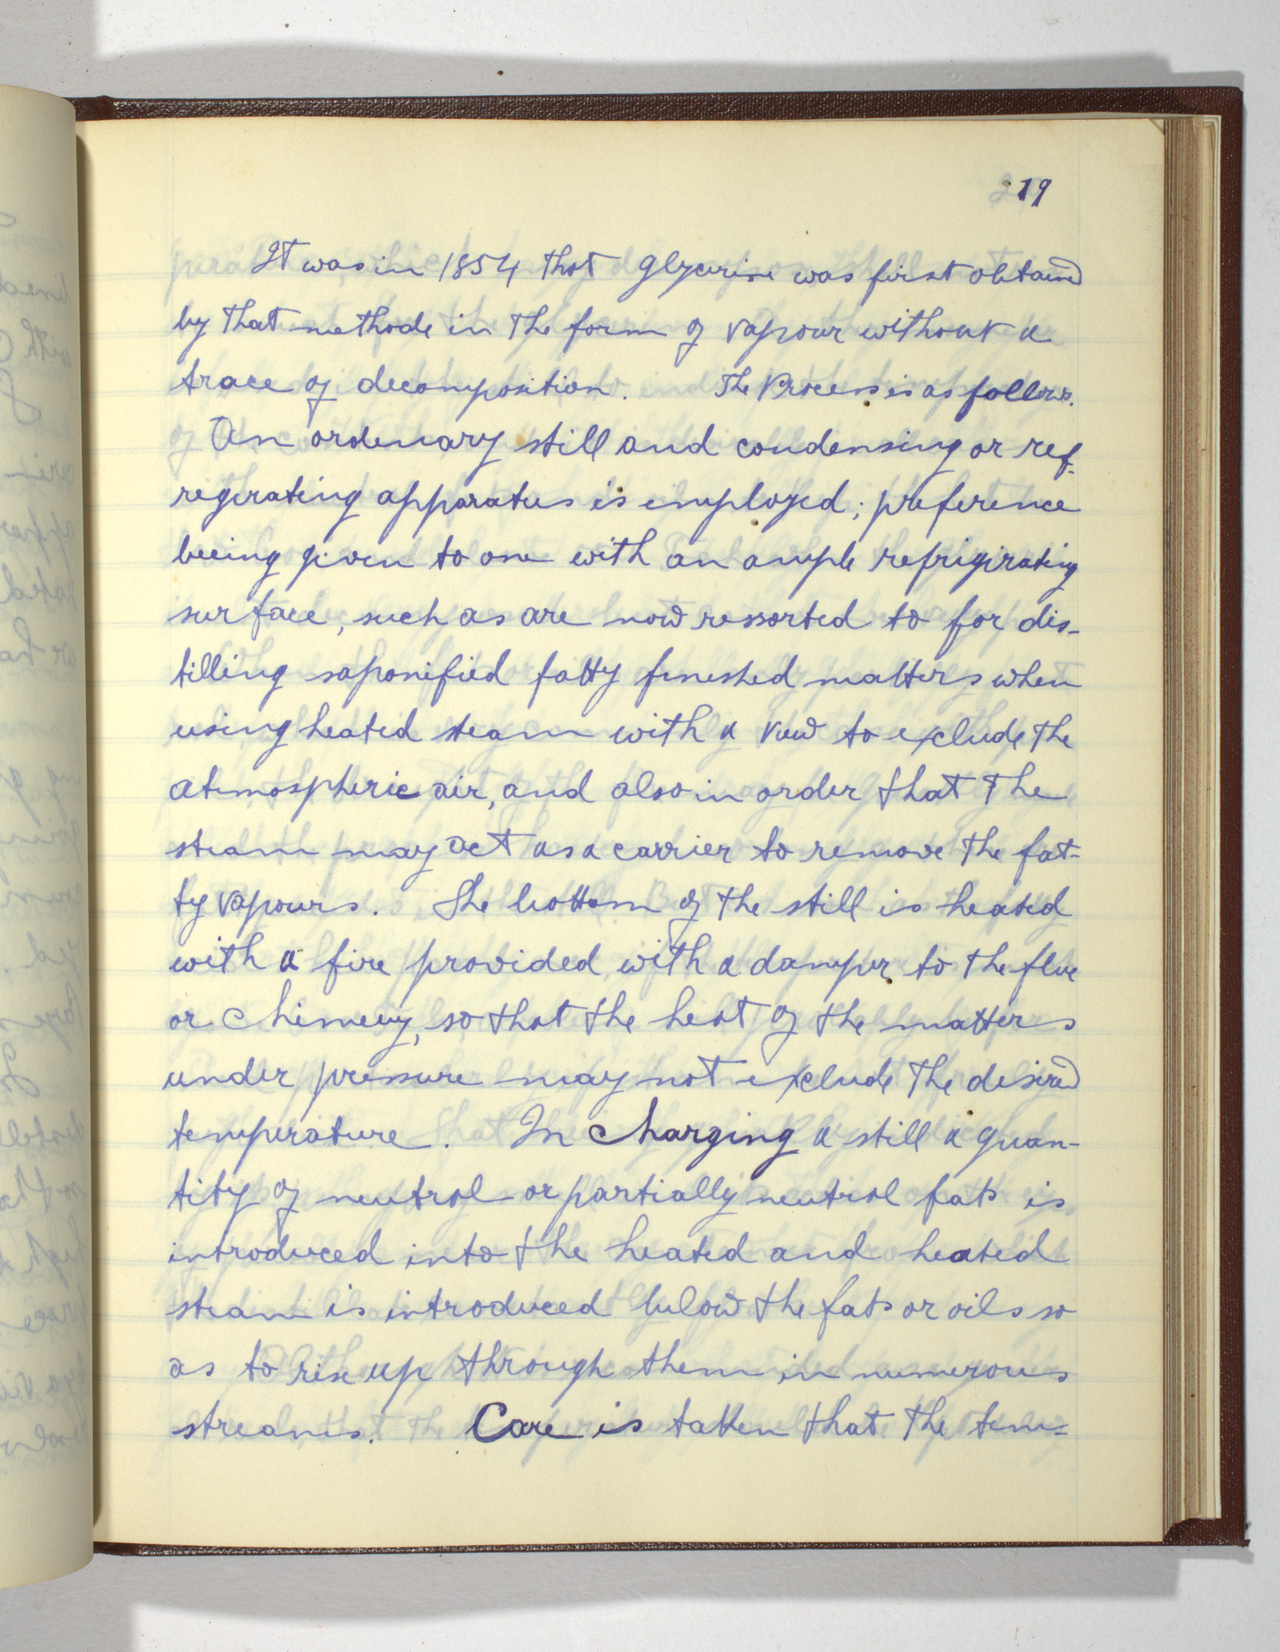 19
It was in 1854 that glycerine was first obtained
by that methode in the form of vapour without a
trace of decomposition. The Process is as follows.
An ordenary still and condensing or ref-
regirating apparatus is employed; preference
beeing given to one with an ample refrigirating
surface, such as are now ressorted to for dis-
tilling saponified fatty fineshed matters when
using heated steam with a view to exclude the
atmospheric air, and also in order that the
steam may act as a carrier to remove the fat-
ty vapours. The bottom of the still is heated
with a fire provided with a damper to the flue
or chimeny, so that the heat of the matters
under pressure may not exclude the desired
temperature. In charging a still a quan-
tity of neutral or partially neutral fats is
introduced into the heated and heated
steam is introduced below the fats or oils so
as to rise up through them in numerous
streams. Care is taken that the tem=